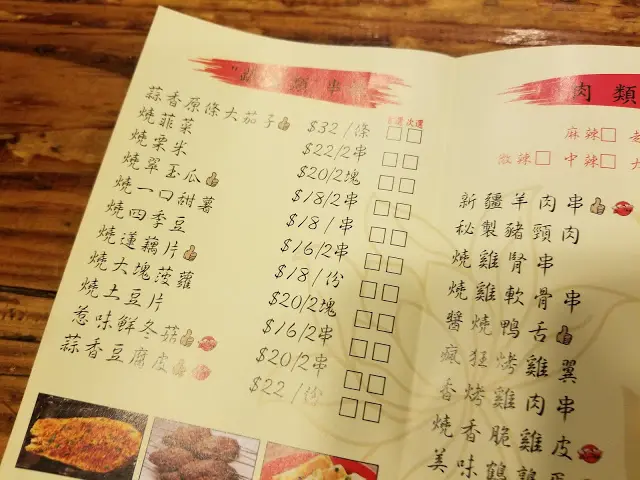 串
首選 次選
蒜香原條大茄子 $32/條
燒韭菜 $22/2串
燒粟米 $20/2塊
燒翠玉瓜 $18/2串
燒一口甜薯 $18/串
燒四季豆 $16/2串
燒蓮藕片 $18/份
燒大塊菠蘿 $20/2塊
燒土豆片 $16/2串
惹味鮮冬菇 $20/2串
蒜香豆腐皮 $22/份
肉類
麻辣
微辣 中辣
新疆羊肉串
秘製豬頸肉
燒雞腎串
燒雞軟骨串
醬燒鴨舌
瘋狂烤雞翼
香烤雞肉串
燒香脆雞皮
美味鵪鶉蛋